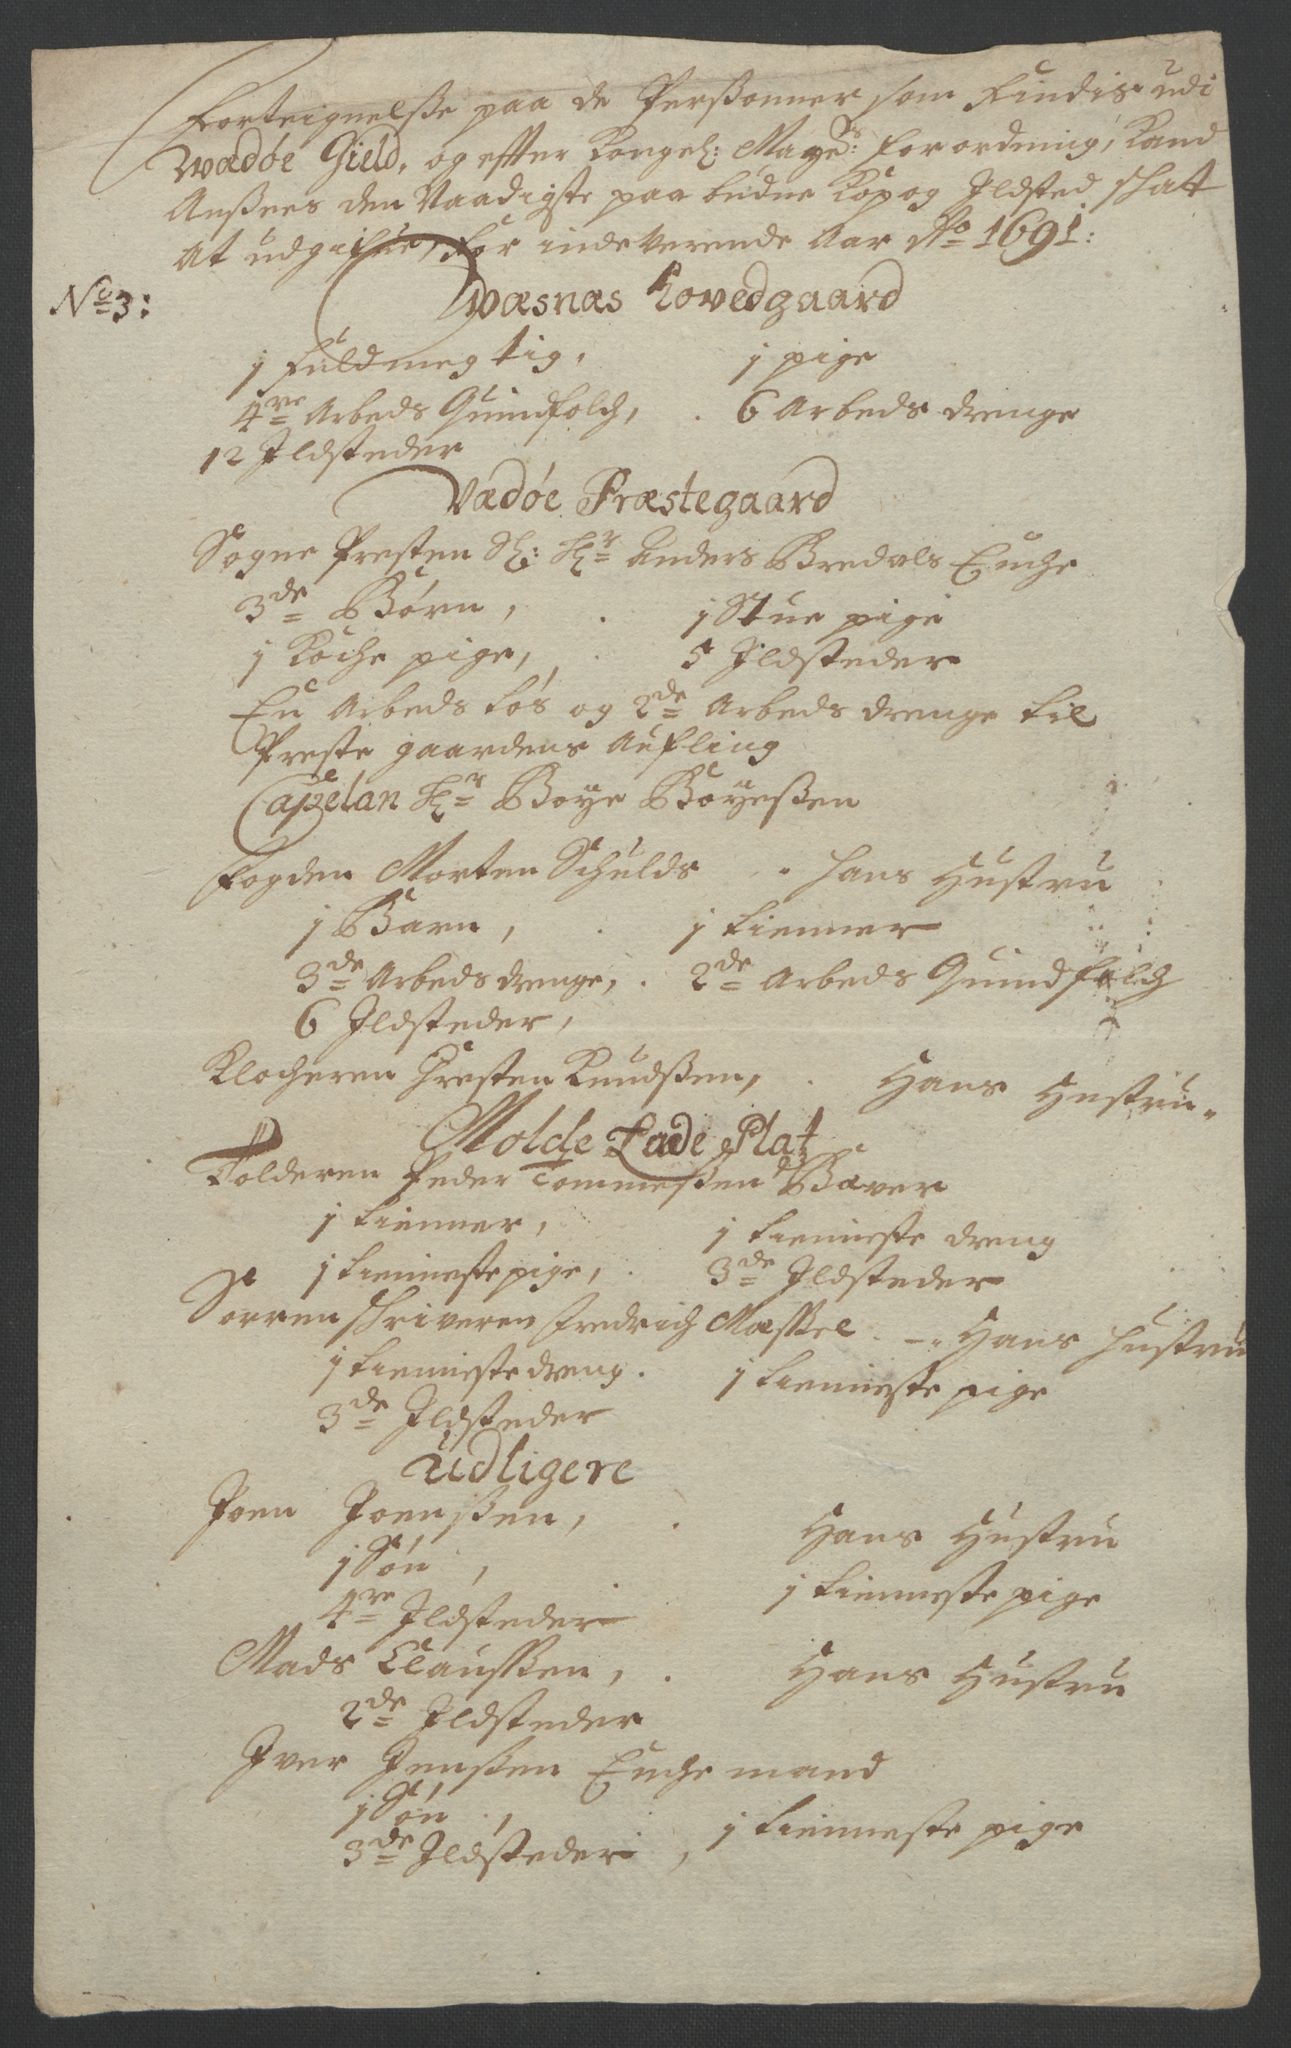 Forteignelsse paa de Perssonner som Findis udi
Wædøe Gield, og effter Kongel: Mayes: forordning, Kand
Anssees den Naadigste paa budne Kop og Ildsted schatt
At udgifue, for indeverende Aar Ao 1691:
No 3:
Wæsnæs Hovedgaard
1 Fuldmegtig, 1 pige
4re Arbeds Quindfolch, 6 Arbeds drenge
12 Ildsteder
Vædøe Præstegaard
Sogne Presten Sl: Hr Anders Bredals Enche
3de Børn, 1 Stue pige
1 Koche pige, 5 Ildsteder
En Arbeds løs og 2de Arbeds drenge til
Preste gaardens Aufling
Capelan Hr Boye Boyessen
Fogden Morten Schulds hans Hustru
1 Barn, 1 tienner
3de Arbeds drenge, 2de Arbeds Quindfolch
6 Ildsteder,
Klocheren Christen Knudssen, Hans Hustru
Molde Lade Platz
Tolderen Peder Tommessen Bæver
1 tienner, 1 tienniste dreng
1 tienneste pige, 3de Ildsteder
Sorrenschriveren Fredrich Masskel Hans hustru
1 tienniste dreng. 1 tienniste pige
3de Ildsteder
Udligere
Joen Joenssen, Hans Hustru
1 Søn, 1 tienneste pige
4re Ildsteder
Mads Claussen, Hans Hustru
2de Ildsteder
Iver Jenssen Enche mand
1 Søn, 1 tienneste pige
3de Ildsteder,